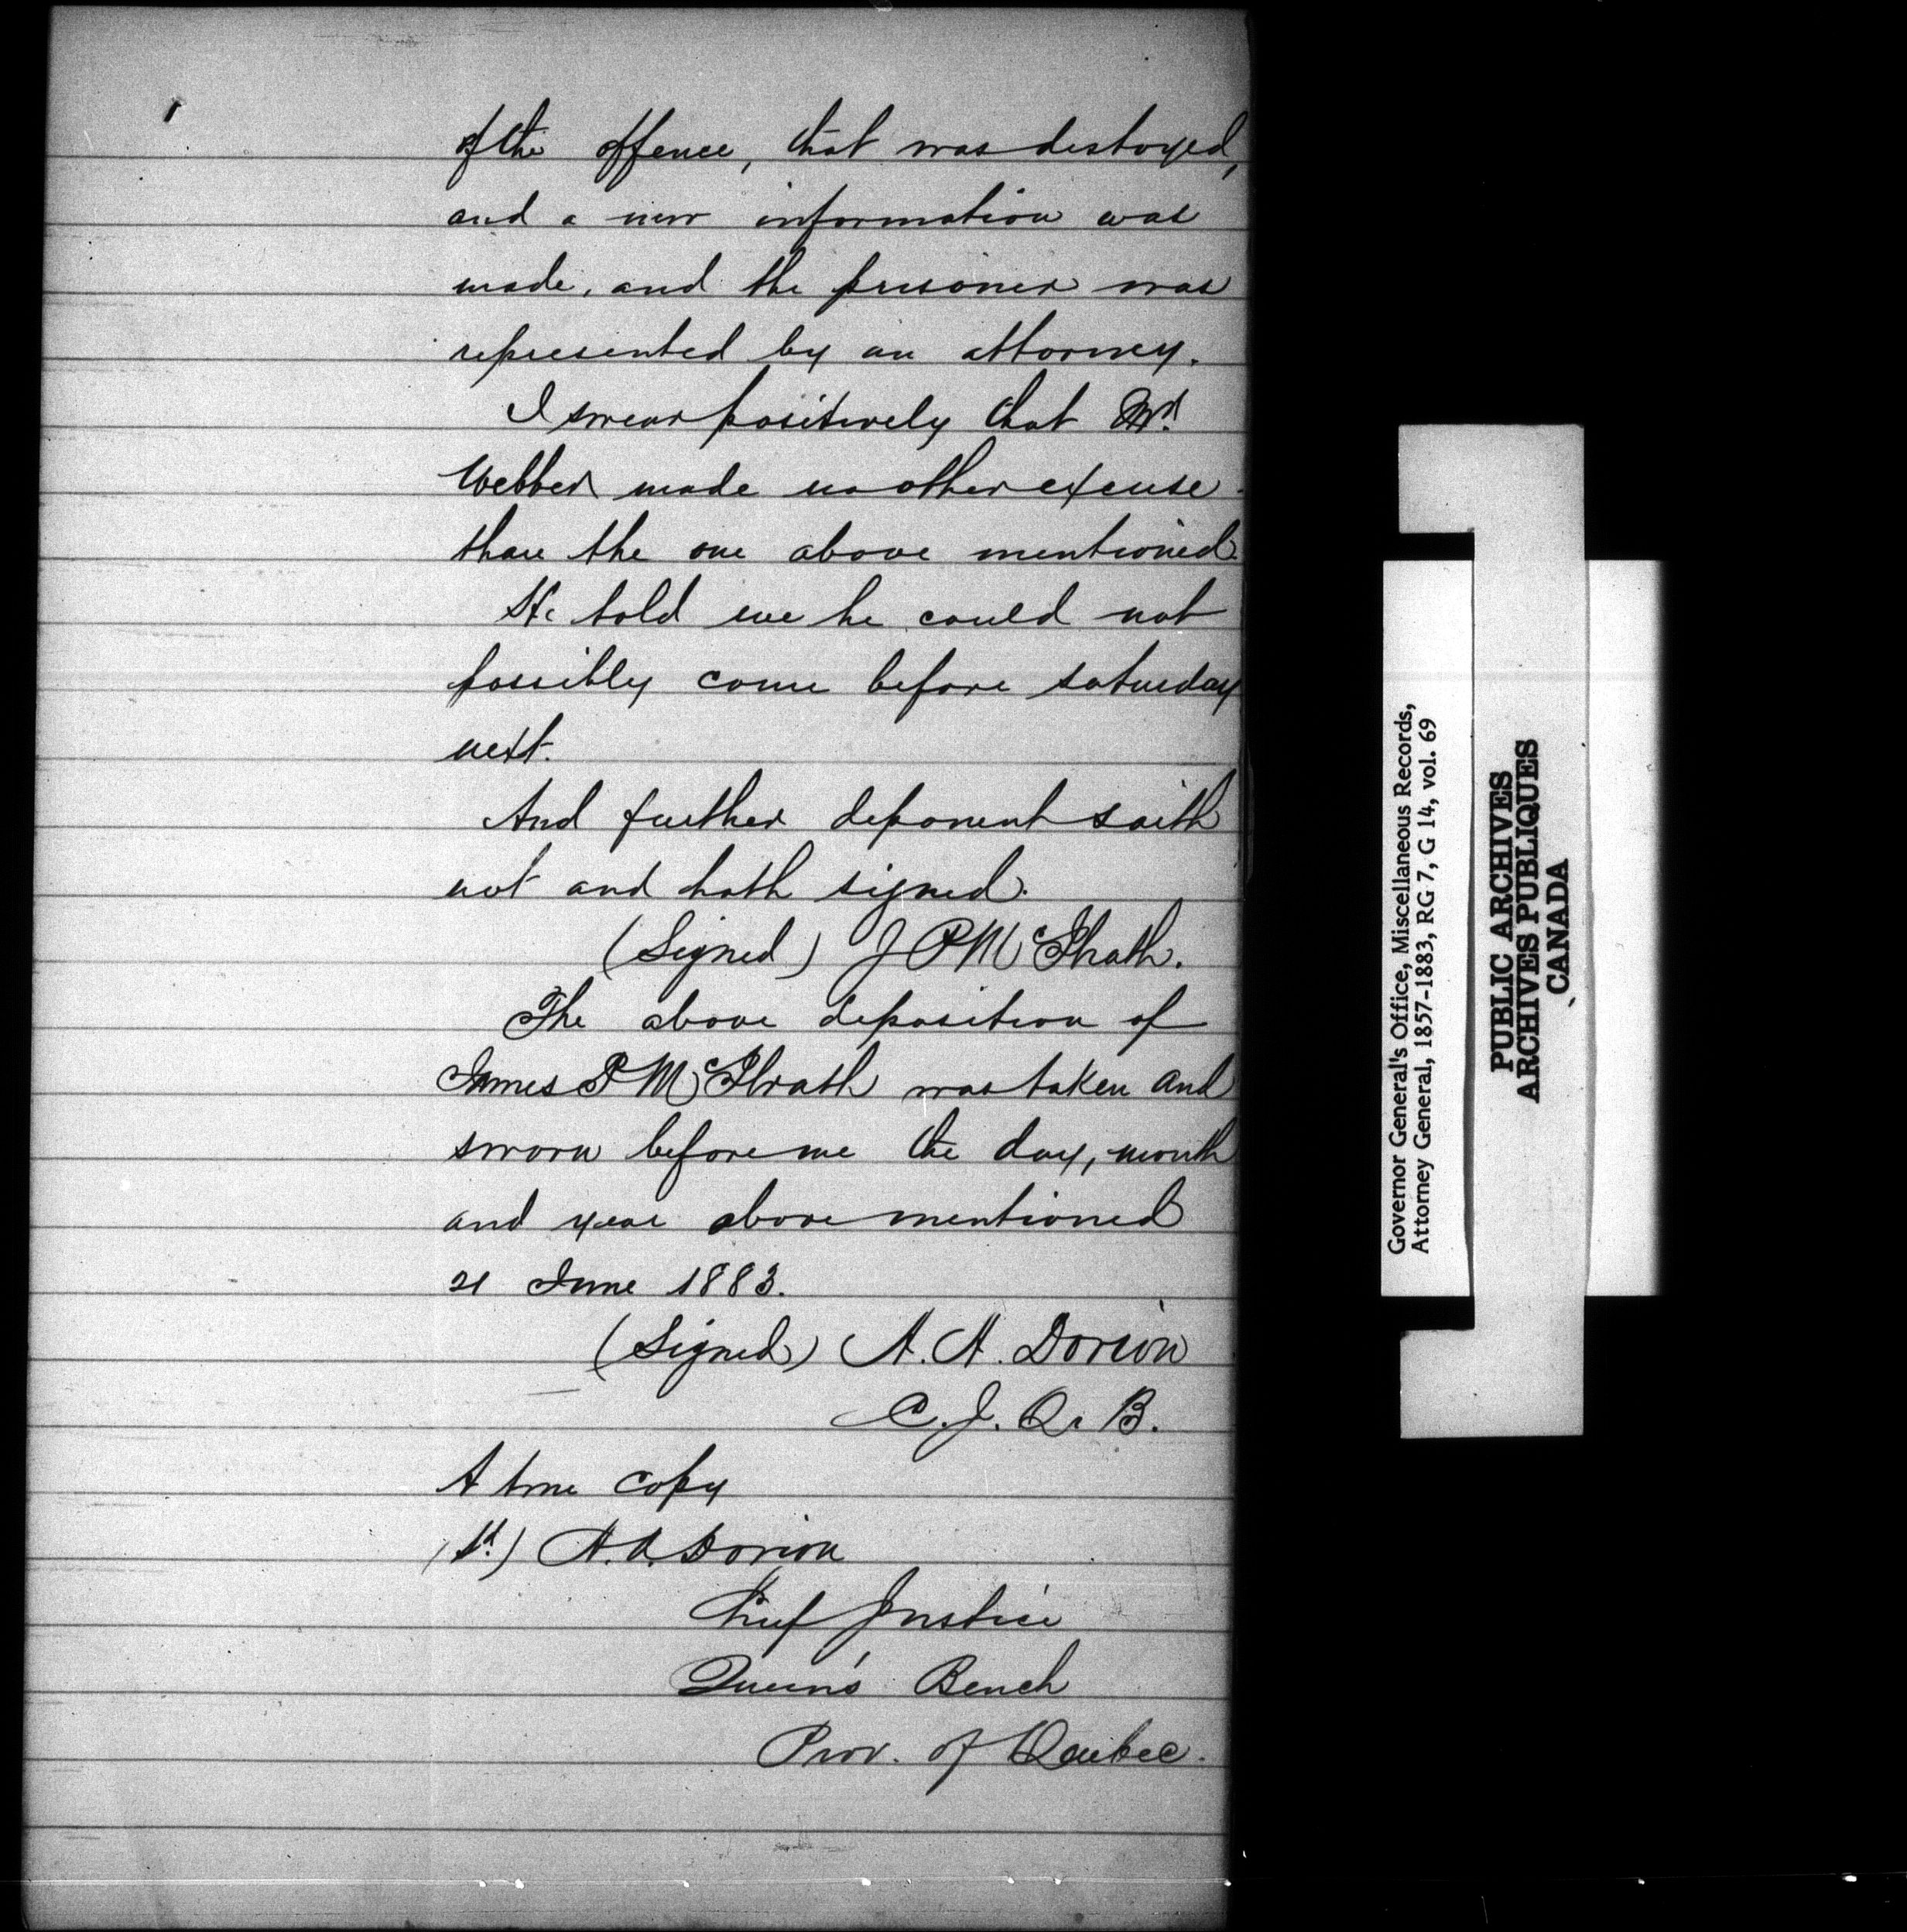 of the offence, that was destoyed,
and a new information was
made, and the prisoner was
represented by an attorney.
I swear positively that Mr.
Webber made no other excuse
than the one above mentioned.
He told me he could not
possibly come before saturday
next.
And further deponent saith
not and hath signed.
(Signed) J P McGrath.
The above deposition of
James P McGrath was taken and
sworn before me the day, month
and year above mentioned
21 June 1883.
(Signed) A. A. Dorion
C. J. Q. B.
A true copy
(Sd.) A. A. Dorion
Chief Justice
Queen's Bench
Prov. of Quebec.
Governor General's Office, Miscellaneous Records,
Attorney General, 1857-1883, RG 7, G 14, vol. 69
PUBLIC ARCHIVES
ARCHIVES PUBLIQUES
CANADA